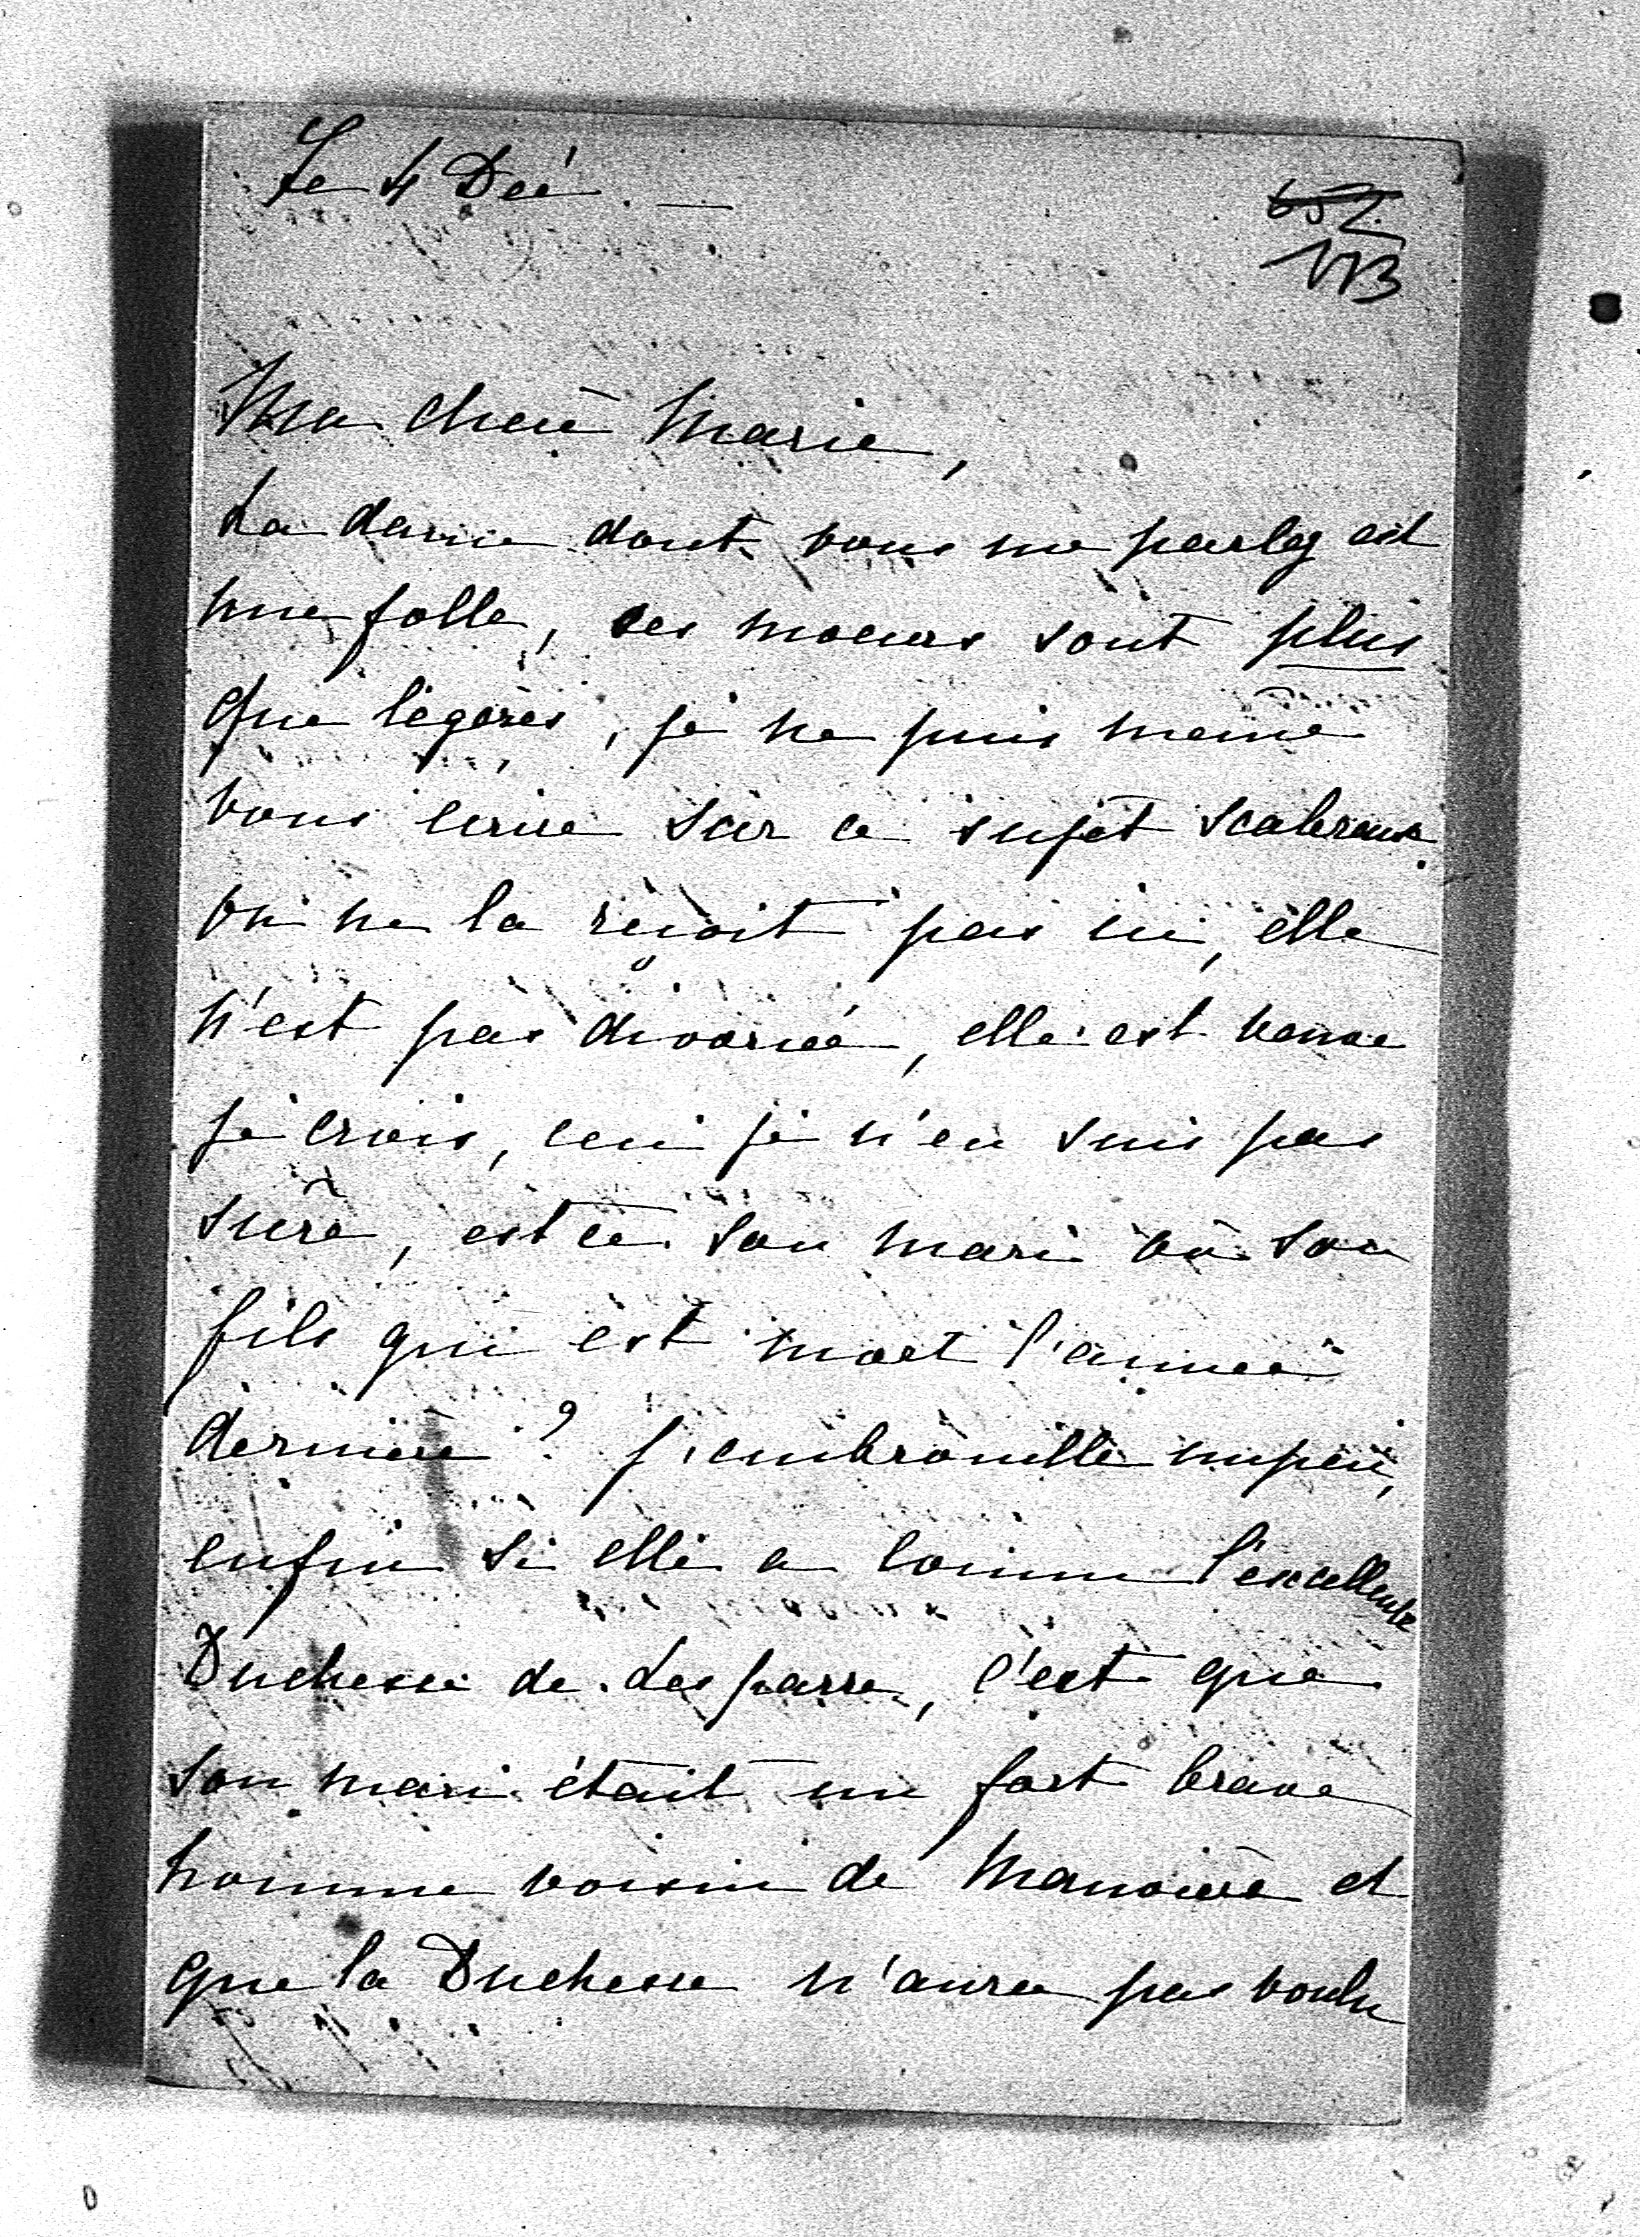 Le 4 Déc. —
652
173
Ma chère Marie,
La dame dont vous me parlez est
une folle, ses moeurs sont plus
que légères, je ne puis même
vous écrire sur ce sujet scabreux.
on ne la reçoit pas ici, elle
n'est pas divorcée, elle est veuve
je crois, je n'en suis pas
sûre, est ce son mari où son
fils qui est mort l'année
dernière ? j'embrouille un peu,
enfin si elle a connu l'excellente
Duchesse de Lesparre, c'est que
son mari était un fort brave
homme voisin de et
que la Duchesse n'aura pas voulu